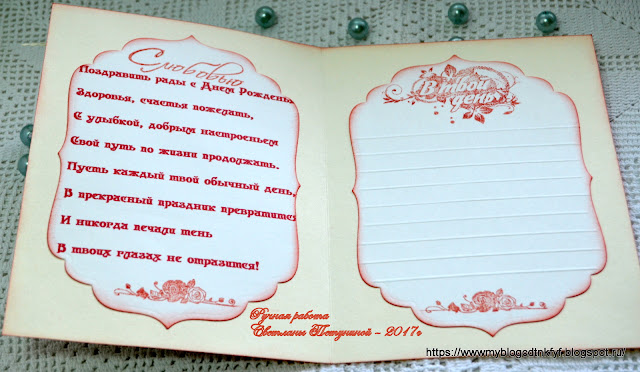 С любовью
Поздравить рады с Днем Рождень
Здоровья, счастья пожелать,
С улыбкой, добрым настроеньем
Свой путь по жизни продолжать.
Пусть каждый твой обычный день,
В прекрасный праздник превратится
И никогда печали тень
В твоих глазах не отразится!
В твой
день
Ручная работа
Светланы Петуниной - 2017г